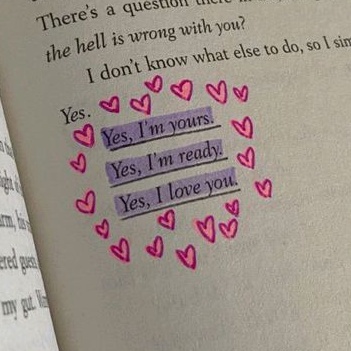 There's a question there
the hell is wrong with you?
I don't know what else to do, so I sim
Yes.
Yes, I'm yours.
Yes, I'm ready.
Yes, I love you.
ered guess
my gut.